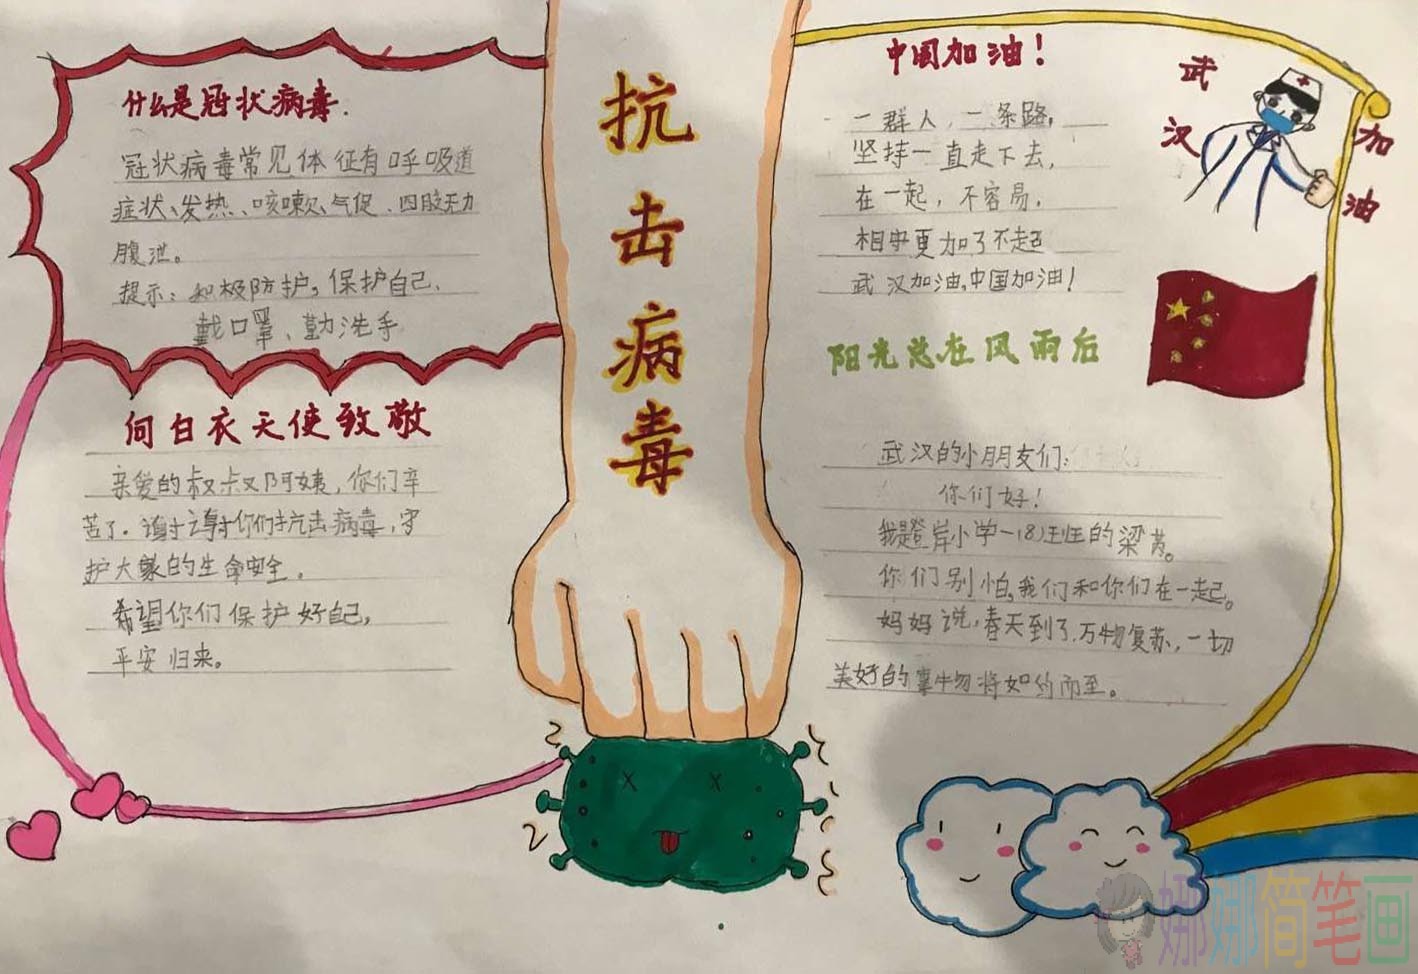 什么是冠状病毒.
冠状病毒常见体征有呼吸道
症状、发热、咳嗽、气促、四肢无力
腹泄。
提示：积极防护，保护自己、
戴口罩、勤洗手
向白衣天使致敬
亲爱的叔叔阿姨，你们辛
苦了。谢谢你们抗击病毒，守
护大家的生命安全。
希望你们保护好自己，
平安归来。
抗
击
病
毒
中国加油！
一群人，一条路，
坚持一直走下去，
在一起，不容易，
相守更加了不起
武汉加油，中国加油！
武
汉
加
油
阳光总在风雨后
武汉的小朋友们：
你们好！
我是登岸小学一(8)班的梁芮。
你们别怕，我们和你们在一起。
妈妈说，春天到了，万物复苏，一切
美好的事物将如约而至。
娜娜简笔画